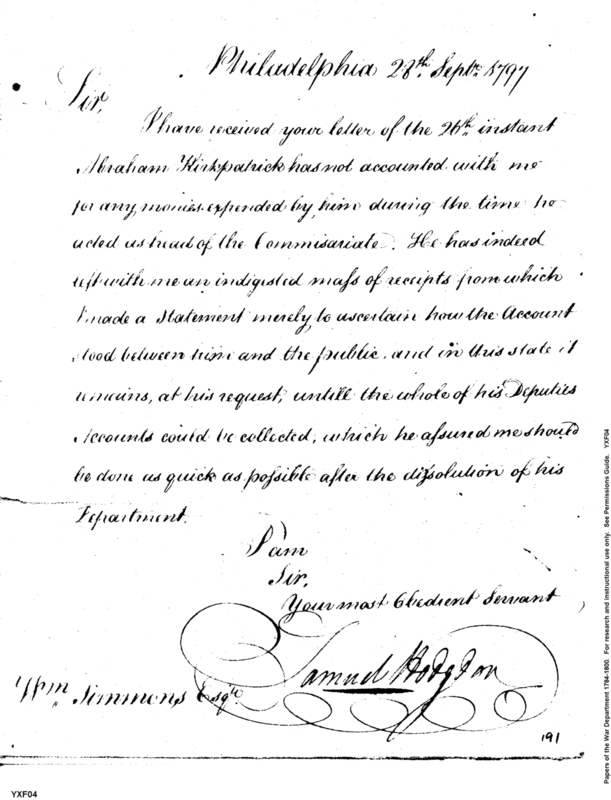 Philadelphia 28th Septr. 1797
Sir,
I have received your letter of the 26th. instant
Abraham Kirkpatrick has not accounted with me
for any monies expended by him during the time he
acted as head of the Commisariate. He has indeed
left with me an indigested mass of receipts from which
I made a Statement merely to ascertain how the Account
stood between him and the public, and in this state it
remains, at his request, untill the whole of his Deputies
Accounts could be collected, which he assured me should
be done as quick as possible after the dissolution of his
Department.
I am
Sir,
Your most Obedient Servant
Samuel Hodgdon
Wm. Simmons Esqr.
191
YXF04
Papers of the War Department 1784-1800. For research and instructional use only. See Permissions Guide. YXF04